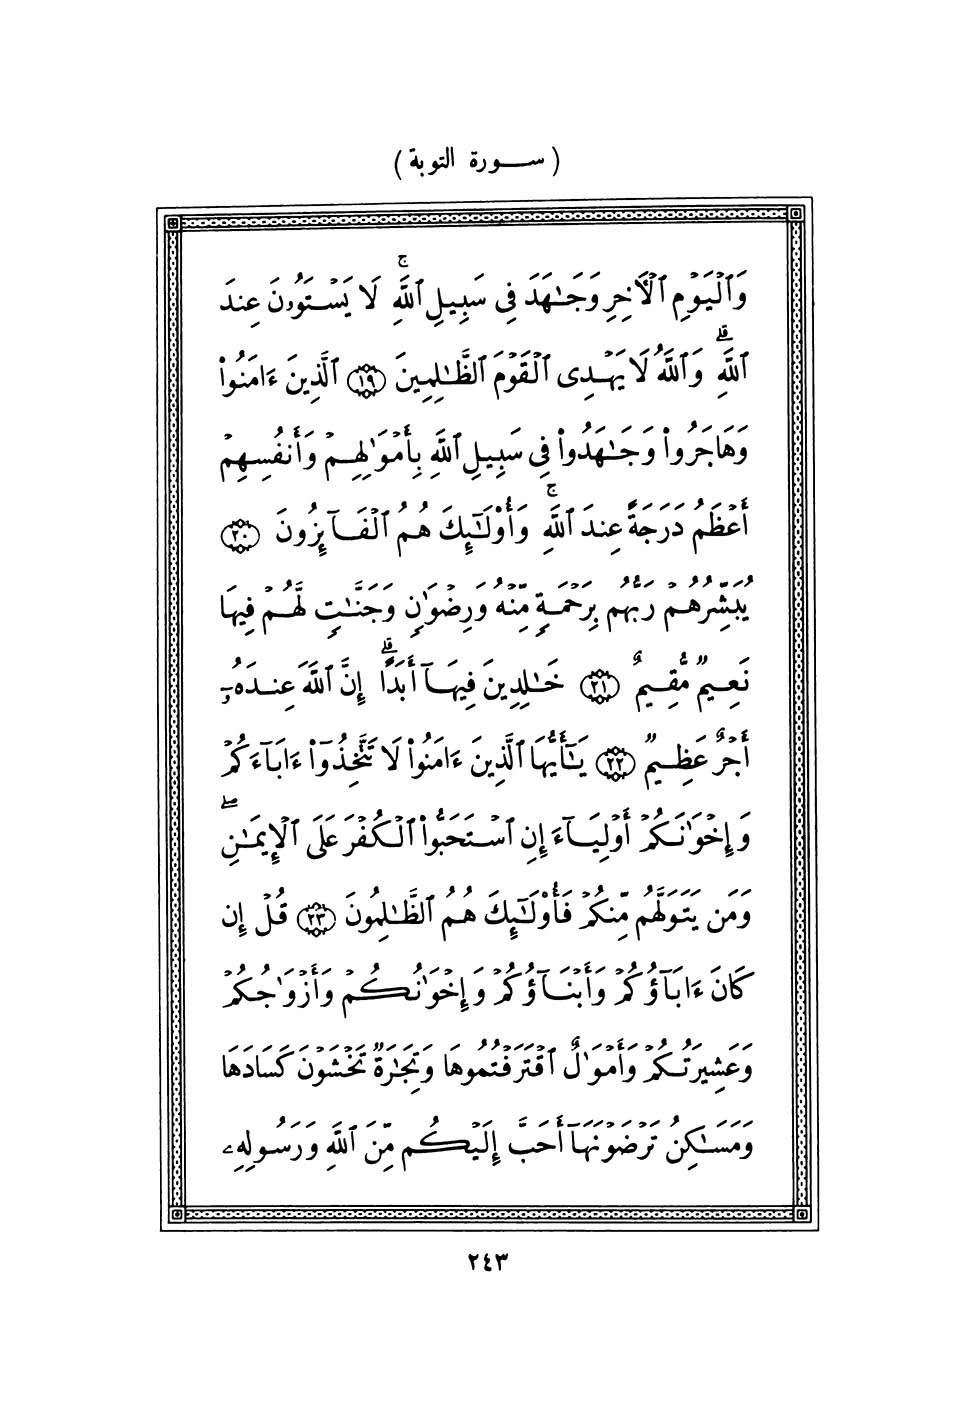 (ســورة التوبة)
وَٱلْيَوْمِ ٱلْأَخِرِ وَجَـٰهَدَ فِى سَبِيلِ ٱللَّهِ ۚ لَا يَسْتَوُۥنَ عِندَ
ٱللَّهِ ۗ وَٱللَّهُ لَا يَهْدِى ٱلْقَوْمَ ٱلظَّـٰلِمِينَ ﴿١٩﴾ ٱلَّذِينَ ءَامَنُوا۟
وَهَاجَرُوا۟ وَجَـٰهَدُوا۟ فِى سَبِيلِ ٱللَّهِ بِأَمْوَٰلِهِمْ وَأَنفُسِهِمْ
أَعْظَمُ دَرَجَةً عِندَ ٱللَّهِ ۚ وَأُو۟لَـٰٓئِكَ هُمُ ٱلْفَآئِزُونَ ﴿٢٠﴾
يُبَشِّرُهُمْ رَبُّهُم بِرَحْمَةٍ مِّنْهُ وَرِضْوَٰنٍ وَجَنَّـٰتٍ لَّهُمْ فِيهَا
نَعِيمٌ مُّقِيمٌ ﴿٢١﴾ خَـٰلِدِينَ فِيهَآ أَبَدًا ۗ إِنَّ ٱللَّهَ عِندَهُۥٓ
أَجْرٌ عَظِيمٌ ﴿٢٢﴾ يَـٰٓأَيُّهَا ٱلَّذِينَ ءَامَنُوا۟ لَا تَتَّخِذُوٓا۟ ءَابَآءَكُمْ
وَإِخْوَٰنَكُمْ أَوْلِيَآءَ إِنِ ٱسْتَحَبُّوا۟ ٱلْكُفْرَ عَلَى ٱلْإِيمَـٰنِ ۖ
وَمَن يَتَوَلَّهُم مِّنكُمْ فَأُو۟لَـٰٓئِكَ هُمُ ٱلظَّـٰلِمُونَ ﴿٢٣﴾ قُلْ إِن
كَانَ ءَابَآؤُكُمْ وَأَبْنَآؤُكُمْ وَإِخْوَٰنُكُمْ وَأَزْوَٰجُكُمْ
وَعَشِيرَتُكُمْ وَأَمْوَٰلٌ ٱقْتَرَفْتُمُوهَا وَتِجَـٰرَةٌ تَخْشَوْنَ كَسَادَهَا
وَمَسَـٰكِنُ تَرْضَوْنَهَآ أَحَبَّ إِلَيْكُم مِّنَ ٱللَّهِ وَرَسُولِهِۦ
٢٤٣